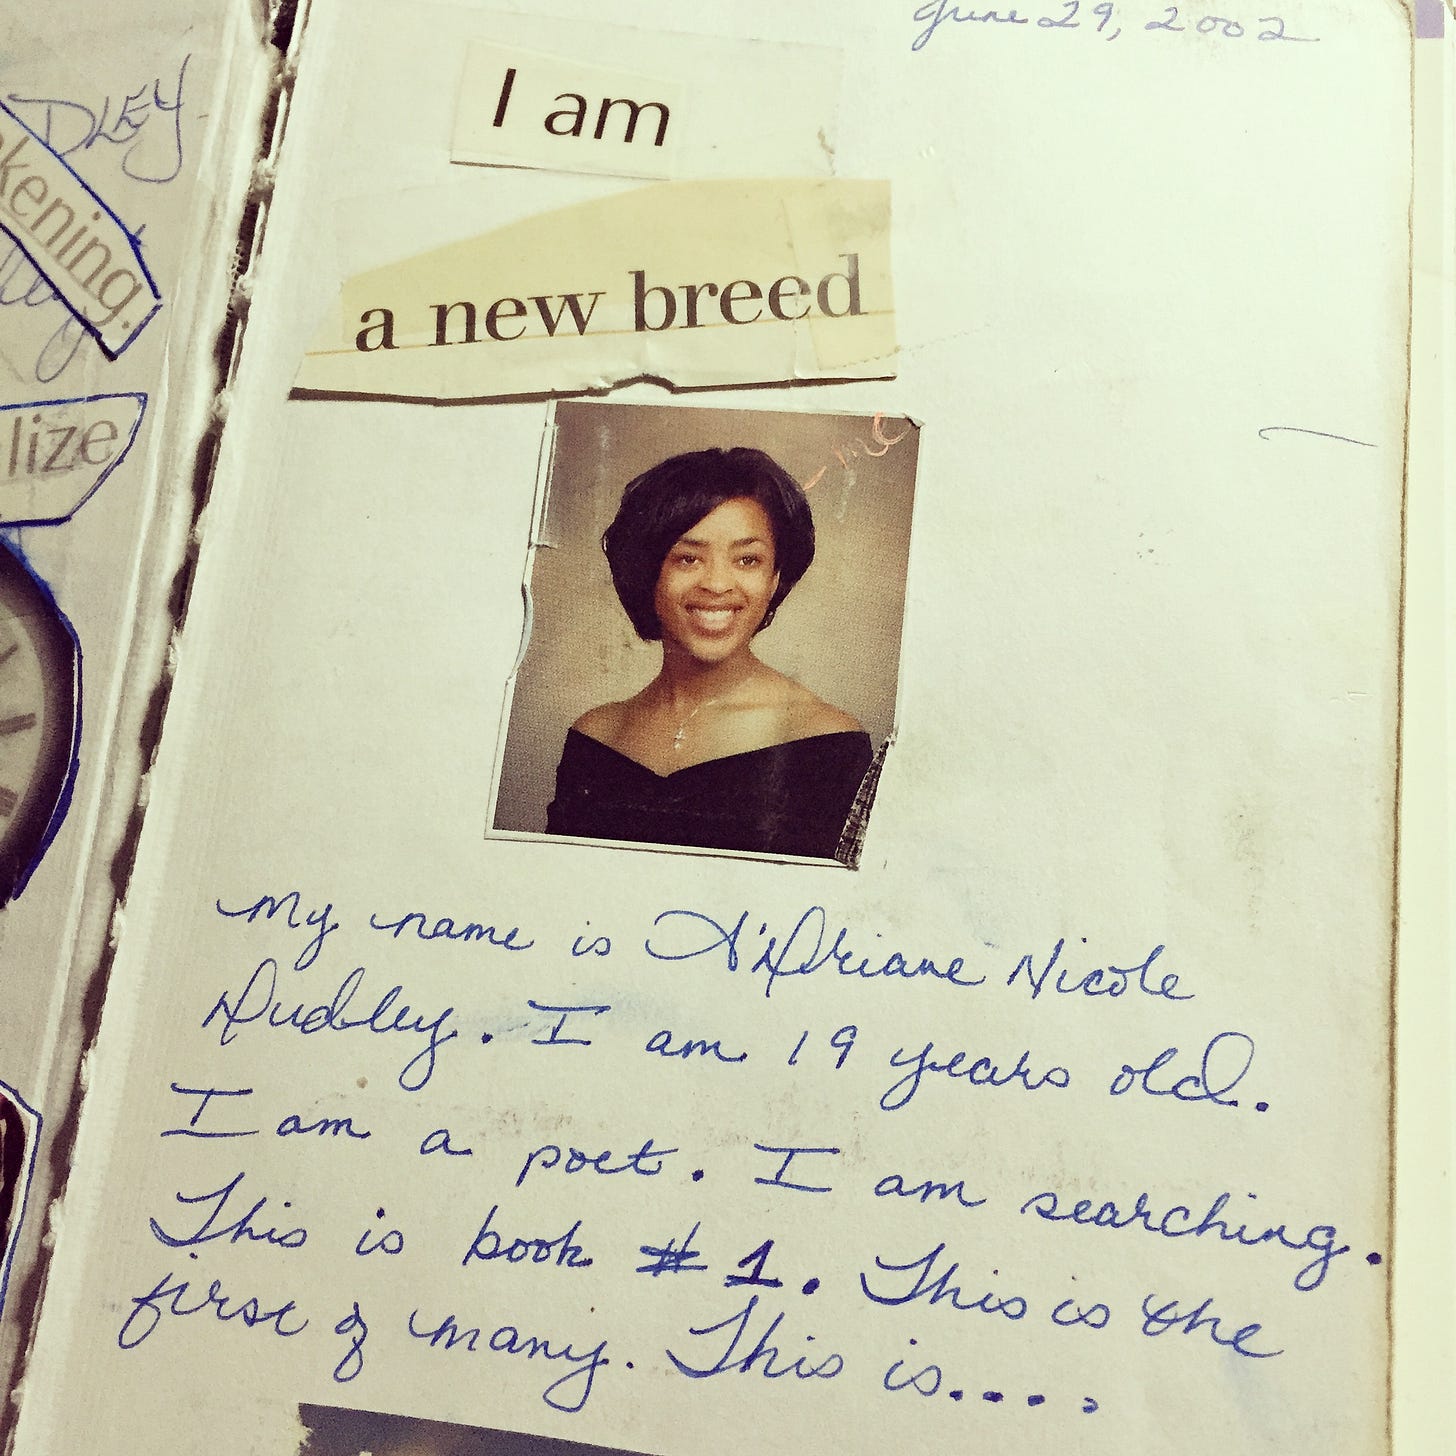 DLEY
kening.
lize
June 29, 2002
I am
a new breed
- me
My name is A'Driane Nicole
Dudley. I am 19 years old.
I am a poet. I am searching.
This is book # 1. This is the
first of many. This is....